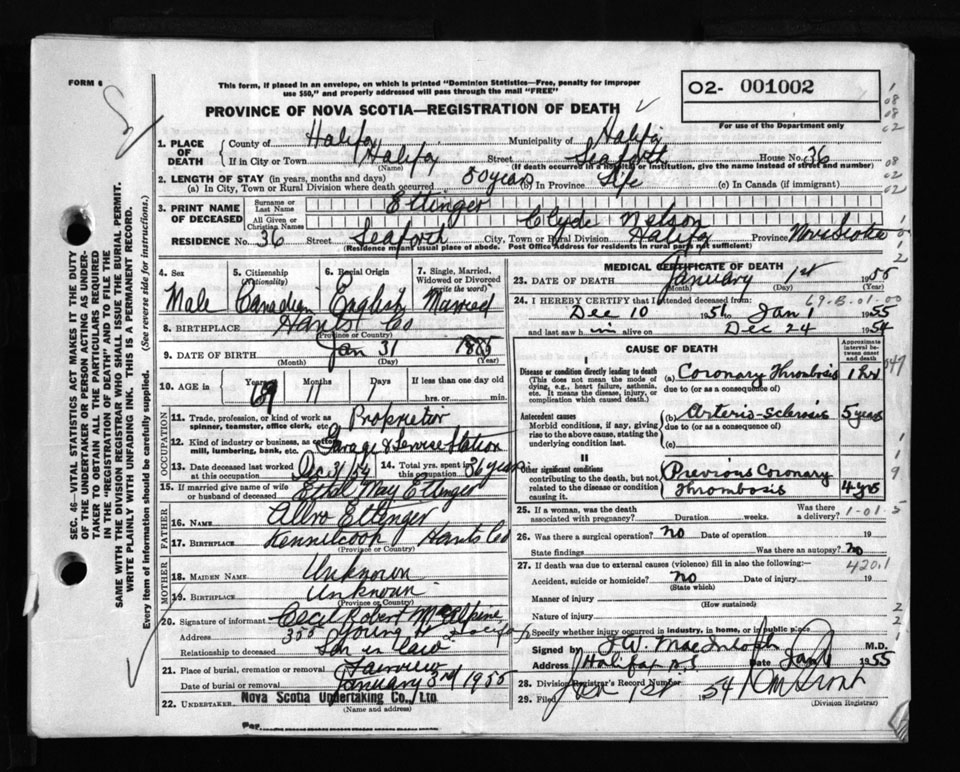 FORM 6
This form, if placed in an envelope, on which is printed "Dominion Statistics—Free, penalty for improper
use $50," and properly addressed will pass through the mail "FREE"
02- 001002
For use of the Department only
PROVINCE OF NOVA SCOTIA—REGISTRATION OF DEATH
SEC. 46—VITAL STATISTICS ACT MAKES IT THE DUTY
OF THE UNDERTAKER OR PERSON ACTING AS UNDER-
TAKER TO OBTAIN ALL THE PARTICULARS REQUIRED
IN THE "REGISTRATION OF DEATH" AND TO FILE THE
SAME WITH THE DIVISION REGISTRAR WHO SHALL ISSUE THE BURIAL PERMIT.
WRITE PLAINLY WITH UNFADING INK. THIS IS A PERMANENT RECORD.
Every item of information should be carefully supplied. (See reverse side for instructions.)
1. PLACE OF DEATH County of Halifax Municipality of Halifax
If in City or Town Halifax (Name) Street Seaforth House No. 36
(If death occurred in a hospital or institution, give the name instead of street and number)
2. LENGTH OF STAY (in years, months and days)
(a) In City, Town or Rural Division where death occurred 50 years (b) In Province Life (c) In Canada (if immigrant)
3. PRINT NAME OF DECEASED Surname or Last Name Ettinger
All Given or Christian Names Clyde Nelson
RESIDENCE No. 36 Street Seaforth City, Town or Rural Division Halifax Province Nova Scotia
(Residence means usual place of abode. Post Office Address for residents in rural parts not sufficient)
4. Sex Male
5. Citizenship (Nationality) Canadian
6. Racial Origin English
7. Single, Married, Widowed or Divorced (write word) Married
8. BIRTHPLACE Hants Co (Province or Country)
9. DATE OF BIRTH Jan 31 1885
(Month) (Day) (Year)
10. AGE in Years 69 Months 11 Days 1 If less than one day old hrs. or min.
OCCUPATION
11. Trade, profession, or kind of work as spinner, teamster, office clerk, etc. Proprietor
12. Kind of industry or business, as cotton mill, lumbering, bank, etc. Garage & Service Station
13. Date deceased last worked at this occupation Dec 31/54 14. Total yrs. spent in this occupation 36 years
15. If married give name of wife or husband of deceased Ethel May Ettinger
FATHER
16. NAME Ettinger
17. BIRTHPLACE Kennetcook Hants Co
(Province or Country)
MOTHER
18. MAIDEN NAME Unknown
19. BIRTHPLACE Unknown
(Province or Country)
20. Signature of informant Cecil Robert McAlpine
Address Young St Halifax
Relationship to deceased Son in Law
21. Place of burial, cremation or removal Fairview
Date of burial or removal January 3rd 1955
22. UNDERTAKER Nova Scotia Undertaking Co., Ltd
(Name and address)
Per
MEDICAL CERTIFICATE OF DEATH
23. DATE OF DEATH January 1st 1955
(Month) (Day)
24. I HEREBY CERTIFY that I attended deceased from: 69-B-01-00
Dec 10 1951 to Jan 1 1955
and last saw him alive on Dec 24 1954
CAUSE OF DEATH
Approximate interval between onset and death
I
Disease or condition directly leading to death (a) Coronary Thrombosis 1 hr
(This does not mean the mode of dying, e.g., heart failure, asthenia, etc. It means the disease, injury, or complication which caused death.)
due to (or as a consequence of)
Antecedent causes (b) Arterio-sclerosis 5 years
Morbid conditions, if any, giving rise to the above cause, stating the underlying condition last.
due to (or as a consequence of)
(c)
II
Other significant conditions contributing to the death, but not related to the disease or condition causing it.
Previous Coronary Thrombosis 4 yrs
25. If a woman, was the death associated with pregnancy? Duration weeks. Was there a delivery?
26. Was there a surgical operation? No Date of operation 19
State findings Was there an autopsy? No
27. If death was due to external causes (violence) fill in also the following:— 420.1
Accident, suicide or homicide? No (State which) Date of injury 19
Manner of injury (How sustained)
Nature of injury
Specify whether injury occurred in industry, in home, or in public place
Signed by J.W. MacIntosh M.D.
Address Halifax N.S Date Jan 1 1955
28. Division Registrar's Record Number
29. Filed Jan 1st 1954
(Division Registrar)